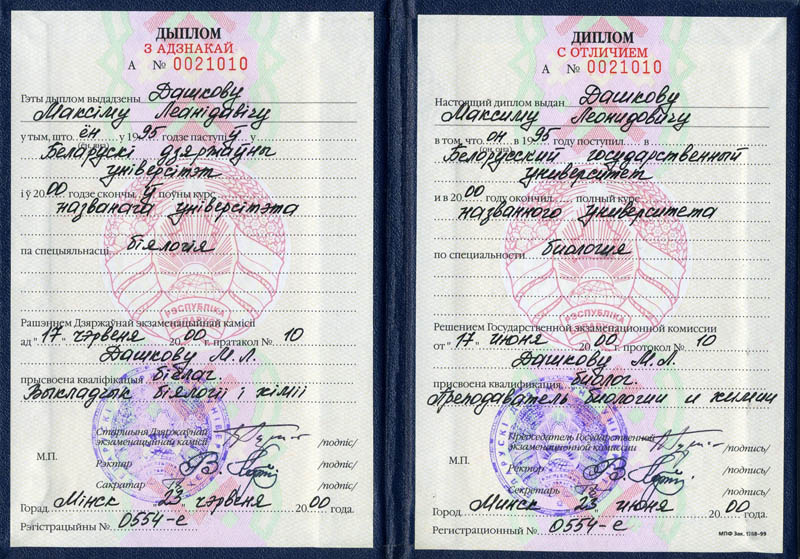 ДЫПЛОМ
З АДЗНАКАЙ
А № 0021010
Гэты дыплом выдадзены Дашкову
Максіму Леанідавічу
у тым, што ён у 1995 годзе паступіў у
(ён, яна)
Беларускі дзяржаўны
ўніверсітэт
і ў 2000 годзе скончыў поўны курс
названага ўніверсітэта
па спецыяльнасці біялогія
РЭСПУБЛІКА
Рашэннем Дзяржаўнай экзаменацыйнай камісіі
ад "17" чэрвеня 2000 г. пратакол № 10
Дашкову М.Л.
прысвоена кваліфікацыя біёлаг.
Выкладчык біялогіі і хіміі
Старшыня Дзяржаўнай
экзаменацыйнай камісіі /подпіс/
М.П.
Рэктар /подпіс/
Сакратар /подпіс/
Горад Мінск 23 чэрвеня 2000 года.
Рэгістрацыйны № 0554-е
ДИПЛОМ
С ОТЛИЧИЕМ
А № 0021010
Настоящий диплом выдан Дашкову
Максиму Леонидовичу
в том, что он в 1995 году поступил в
(он, она)
Белорусский государственный
университет
и в 2000 году окончил полный курс
названного университета
по специальности биология
РЭСПУБЛІКА
Решением Государственной экзаменационной комиссии
от "17" июня 2000 г. протокол № 10
Дашкову М.Л.
присвоена квалификация биолог.
Преподаватель биологии и химии
Председатель Государственной
экзаменационной комиссии /подпись/
М.П.
Ректор /подпись/
Секретарь /подпись/
Город Минск 23 июня 2000 года.
Регистрационный № 0554-е
МПФ Зак. 1268-99